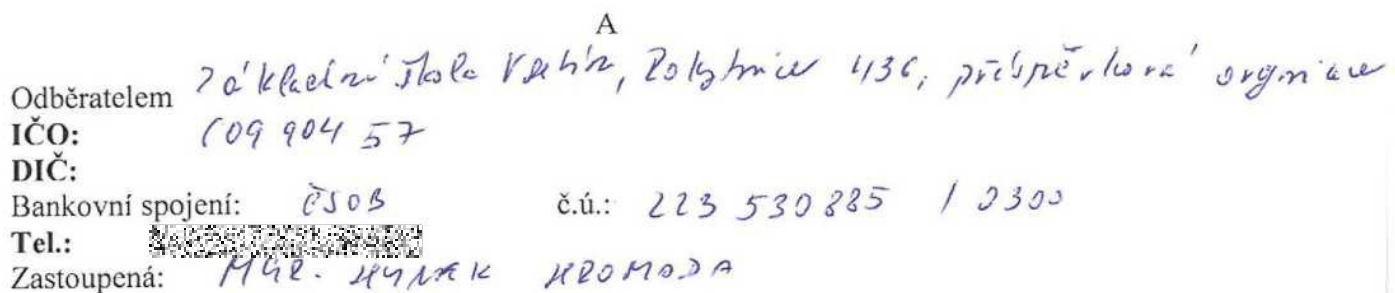 A
Odběratelem Základní škola Vsetín, Rokytnice 436, příspěvková organizace
IČO: 60990457
DIČ:
Bankovní spojení: ČSOB č.ú.: 223 530 885 / 0300
Tel.:
Zastoupená: MGR. HYNEK HROMADA